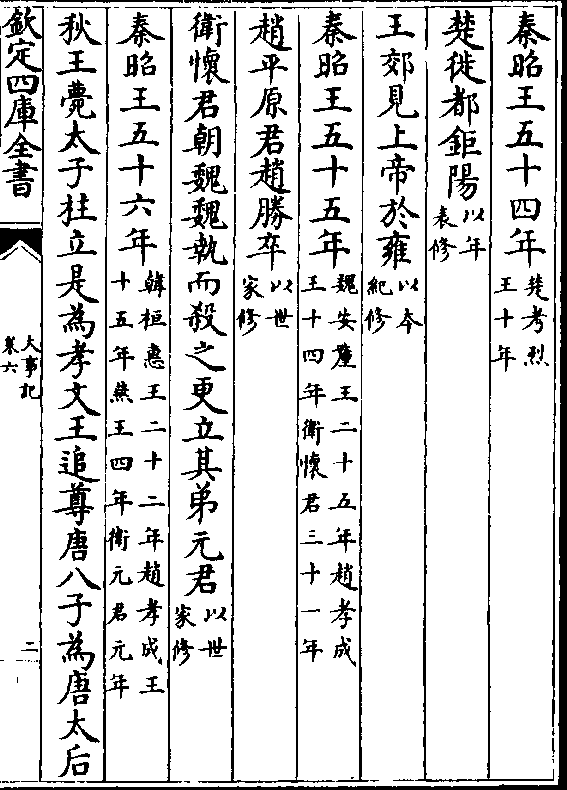 秦昭王五十四年楚考烈王十年
楚徙都鉅陽以年表修
王郊見上帝於雍以本紀修
秦昭王五十五年魏安釐王二十五年趙孝成王十四年衛懷君三十一年
趙平原君趙勝卒以世家修
衛懷君朝魏魏執而殺之更立其弟元君以世家修
秦昭王五十六年韓桓惠王二十二年趙孝成王十五年燕王四年衛元君元年
秋王薨太子柱立是為孝文王追尊唐八子為唐太后
欽定四庫全書
大事記
卷六
二